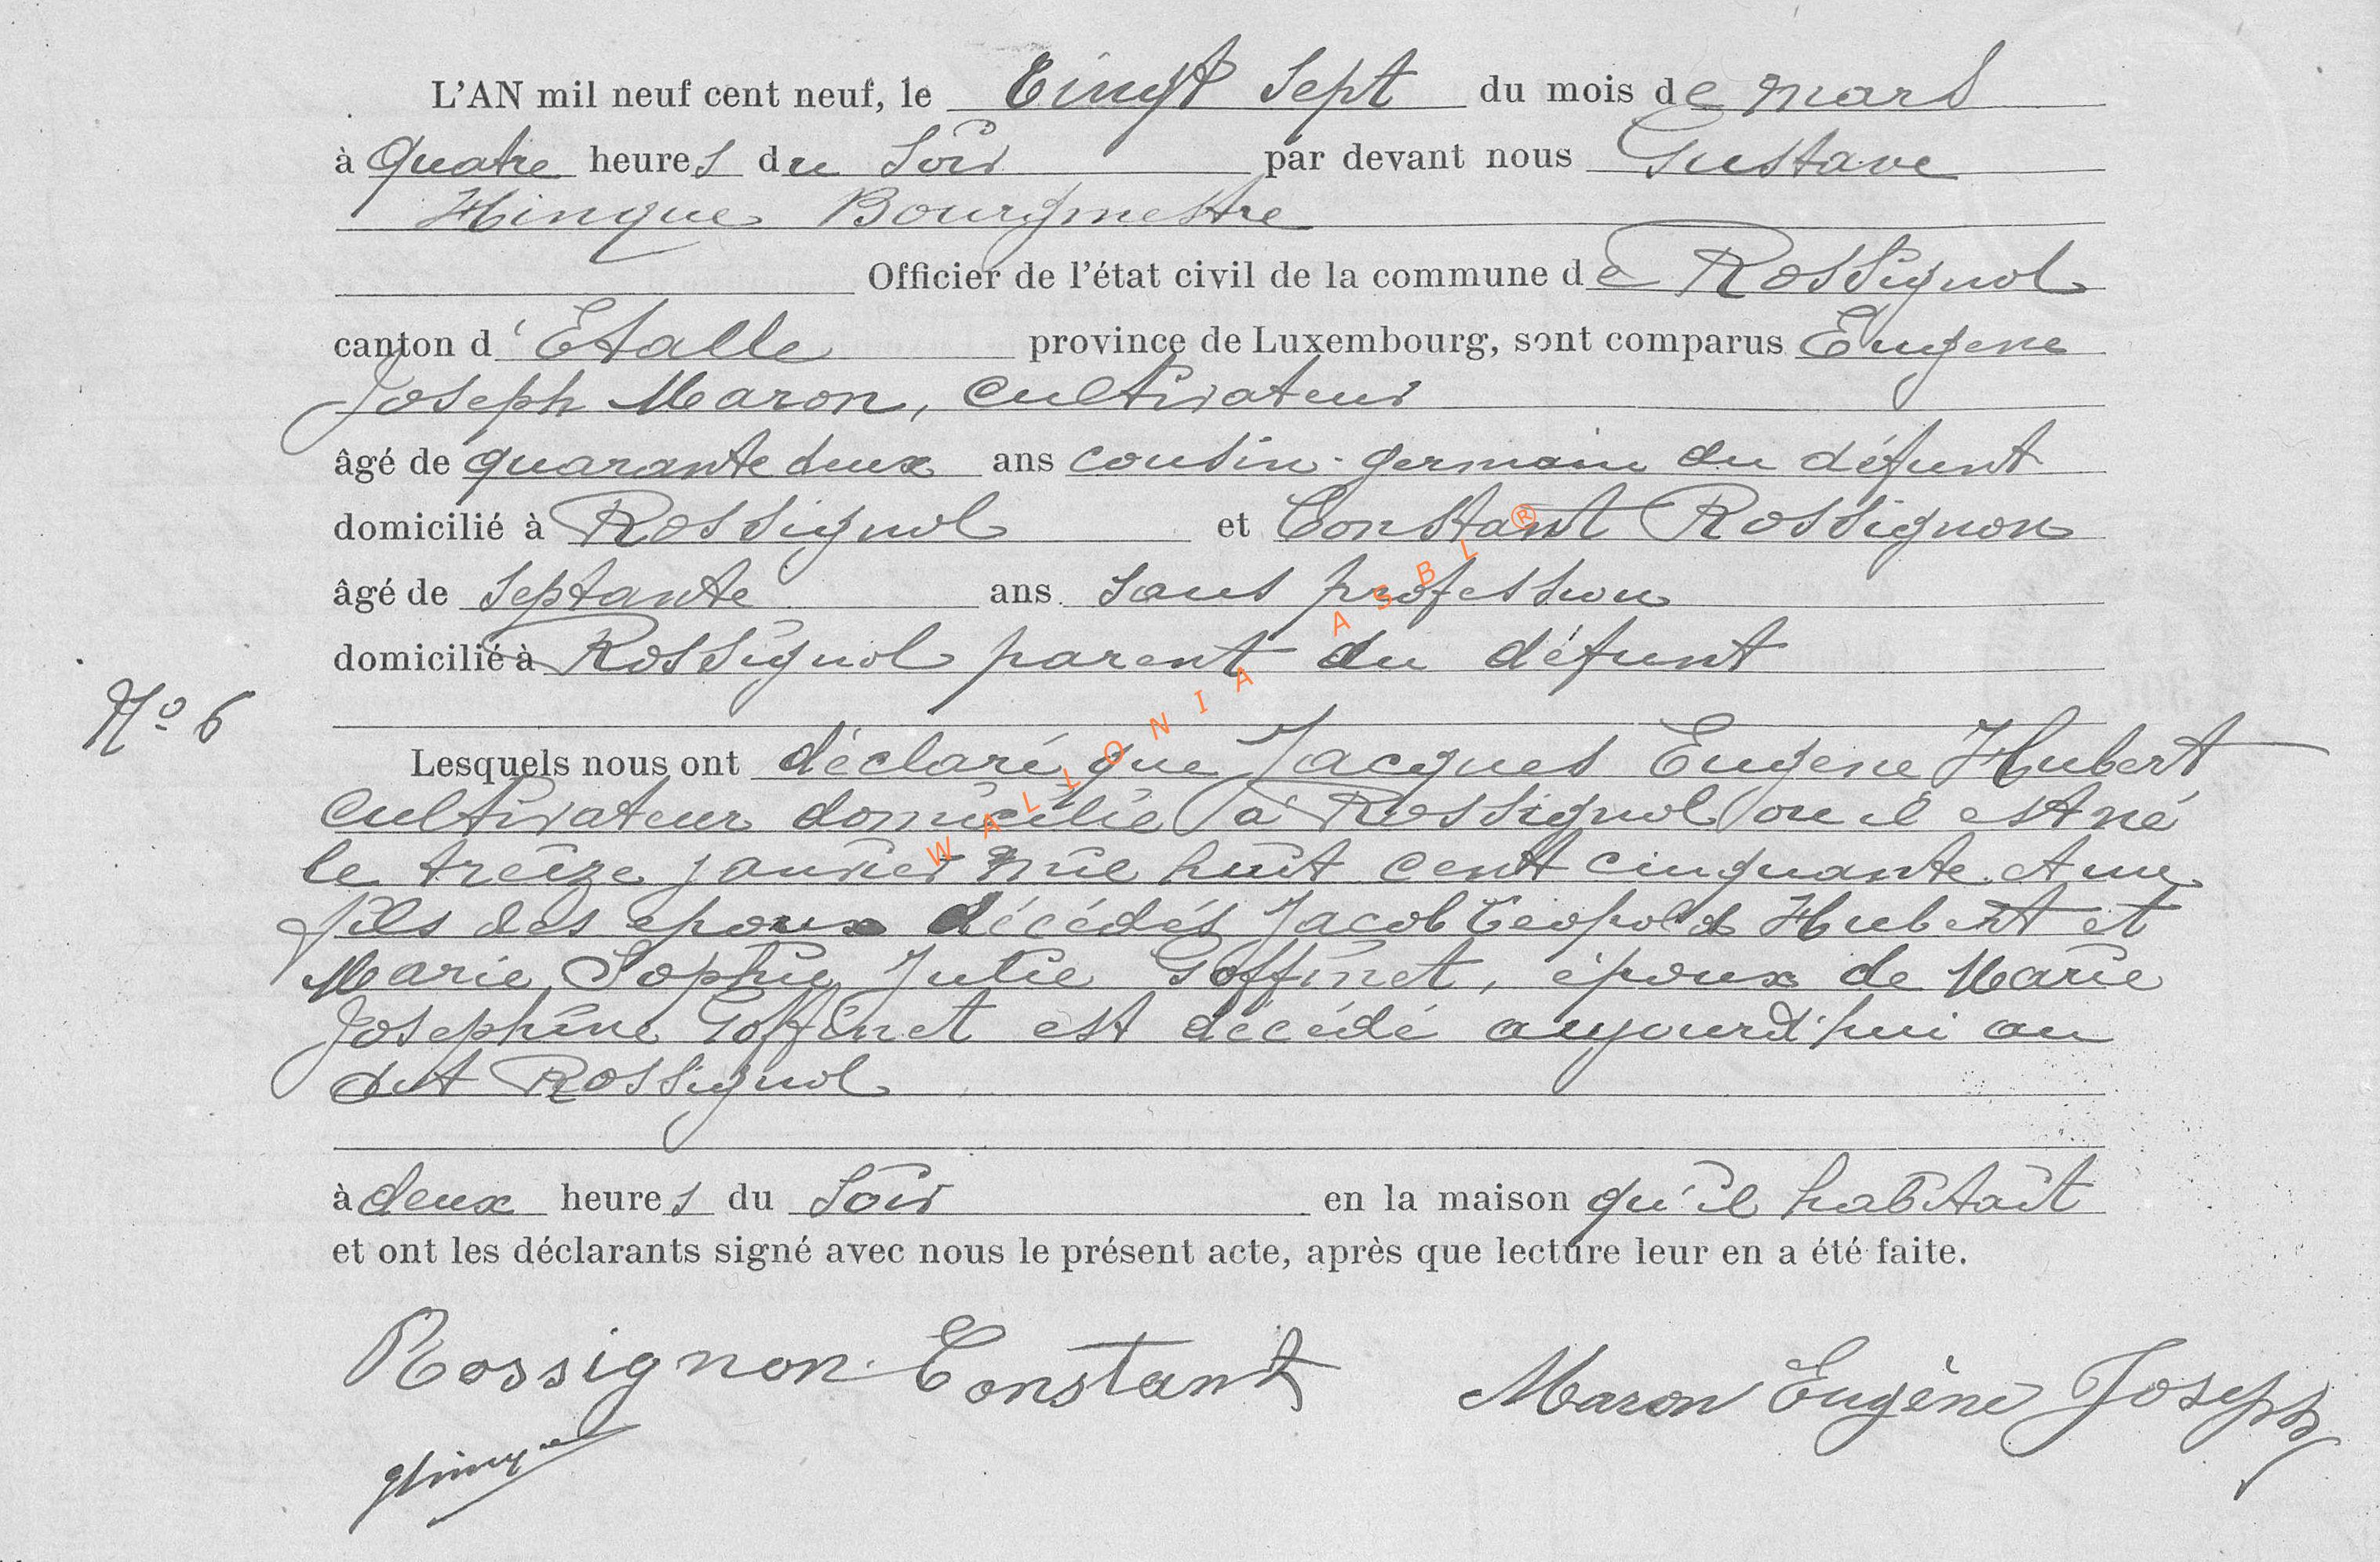 L'AN mil neuf cent neuf, le Vingt Sept du mois de mars
à quatre heures du Soir par devant nous Gustave
Hinque Bourgmestre
Officier de l'état civil de la commune de Rossignol
canton d'Etalle province de Luxembourg, sont comparus Eugene
Joseph Maron, cultivateur
âgé de quarante deux ans cousin-germain du défunt
domicilié à Rossignol et Constant Rossignon
âgé de Septante ans sans profession
domicilié à Rossignol parent du défunt
No 6
Lesquels nous ont déclaré que Jacques Eugene Hubert
cultivateur domicilié à Rossignol ou il est né
le treize janvier mil huit cent cinquante et un
fils des epoux décédés Jacob Léopold Hubert et
Marie Sophie Julie Goffinet, époux de Marie
Josephine Goffinet est décédé aujourd'hui au
dit Rossignol
à deux heures du Soir en la maison qu'il habitait
et ont les déclarants signé avec nous le présent acte, après que lecture leur en a été faite.
Rossignon Constant Maron Eugène Joseph
GHinque
WALLONIA ASBL ®